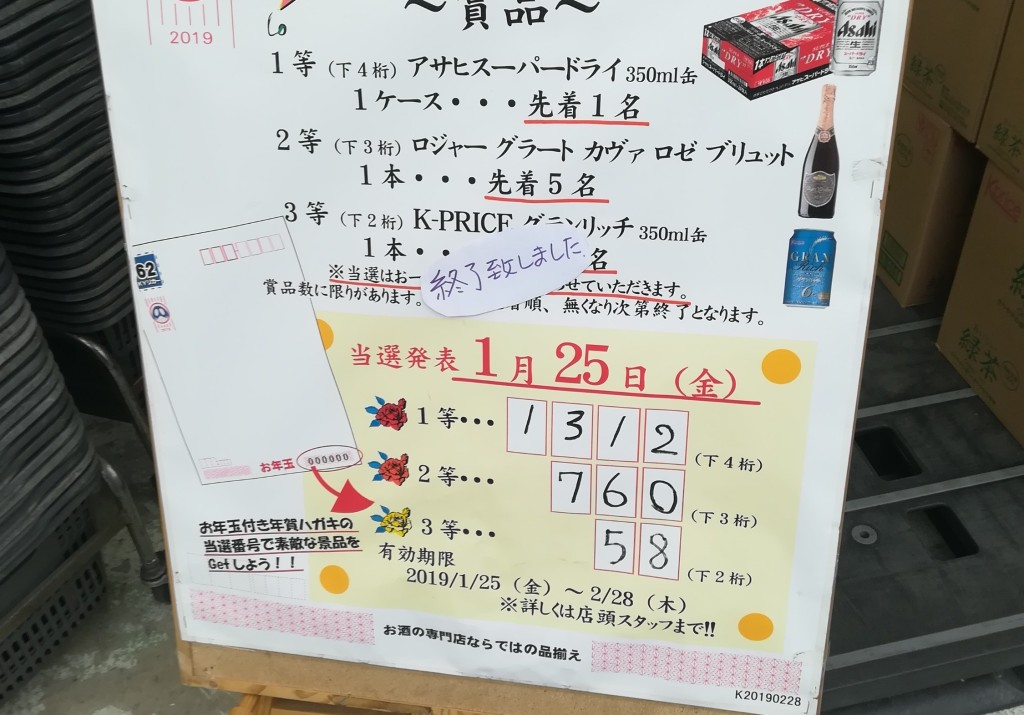 2019
~賞品~
1等（下4桁）アサヒスーパードライ 350ml缶
1ケース・・・先着1名
2等（下3桁）ロジャー グラート カヴァ ロゼ ブリュット
1本・・・先着5名
3等（下2桁）K-PRICE グランリッチ 350ml缶
1本・・
名
終了致しました
※当選はお一
せていただきます。
賞品数に限りがあります。
順、無くなり次第終了となります。
Asahi
DRY
Asahi
生
GRAN
Rich
6
62
お年玉
000000
お年玉付き年賀ハガキの
当選番号で素敵な景品を
Getしよう！！
当選発表 1月25日（金）
1等・・・ 1312（下4桁）
2等・・・ 760（下3桁）
3等・・・ 58（下2桁）
有効期限
2019/1/25（金）～2/28（木）
※詳しくは店頭スタッフまで!!
お酒の専門店ならではの品揃え
K20190228
緑茶
緑茶